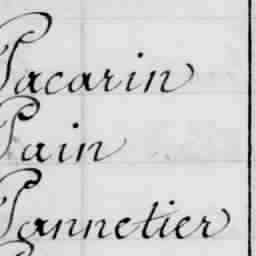 Pacarin
Pain
Pannetier